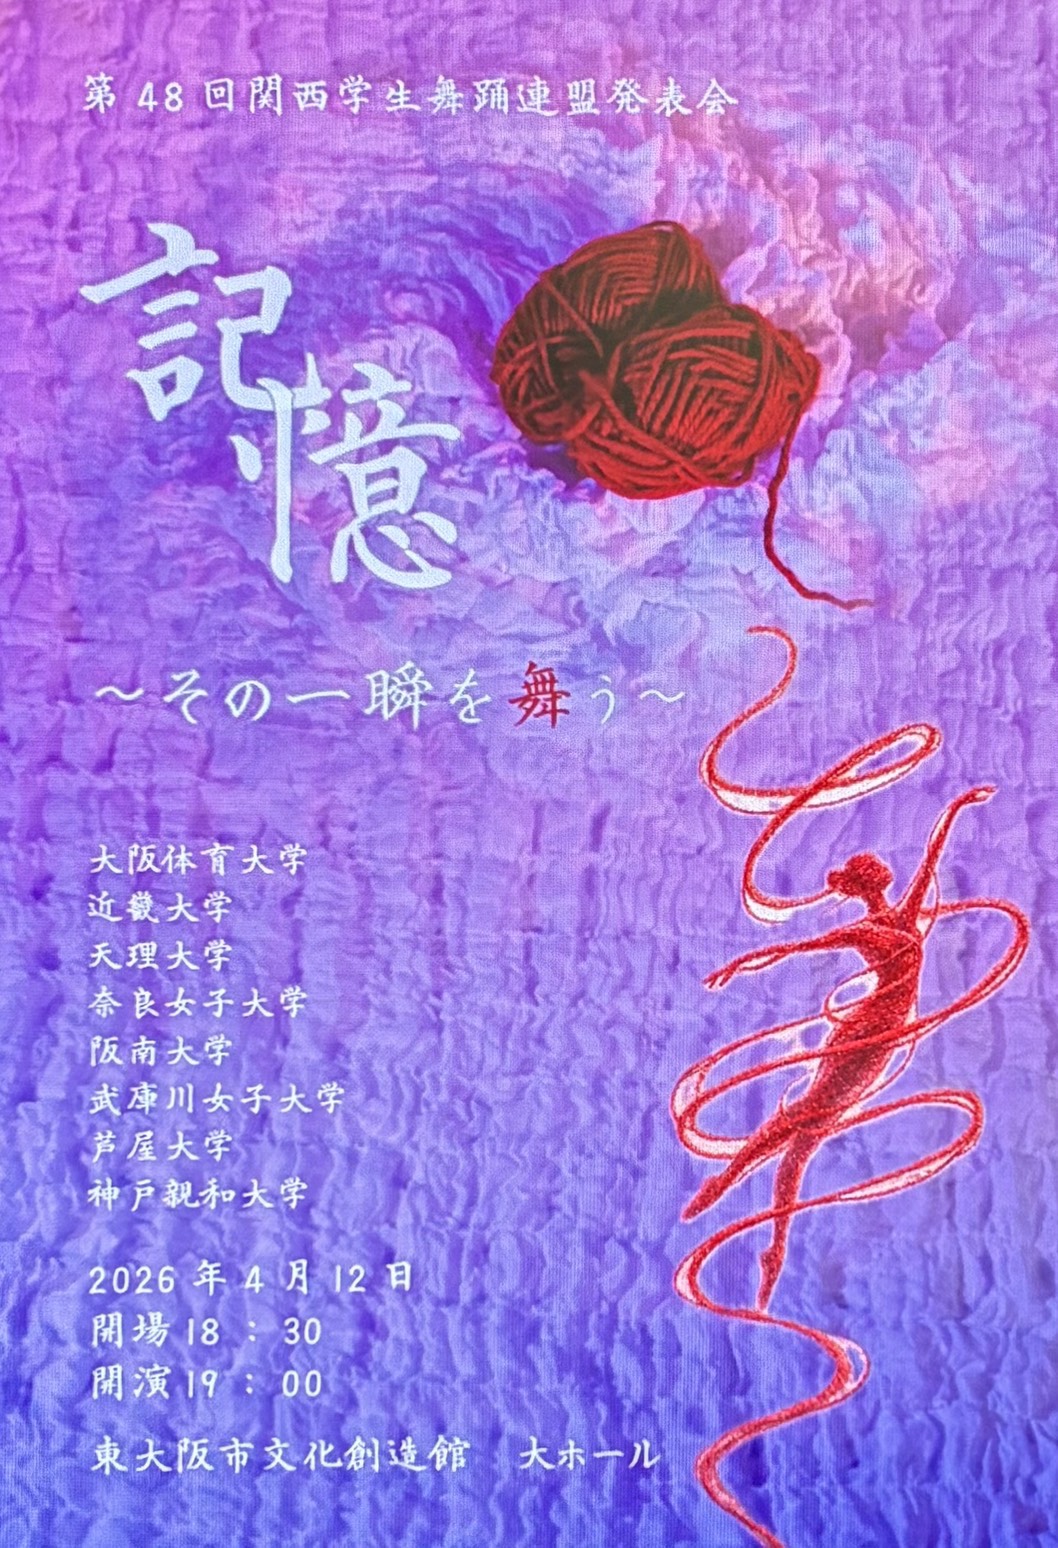 第 48 回関西学生舞踊連盟発表会
記憶
～その一瞬を舞う～
大阪体育大学
近畿大学
天理大学
奈良女子大学
阪南大学
武庫川女子大学
芦屋大学
神戸親和大学
2026 年 4 月 12 日
開場 18 : 30
開演 19 : 00
東大阪市文化創造館　大ホール